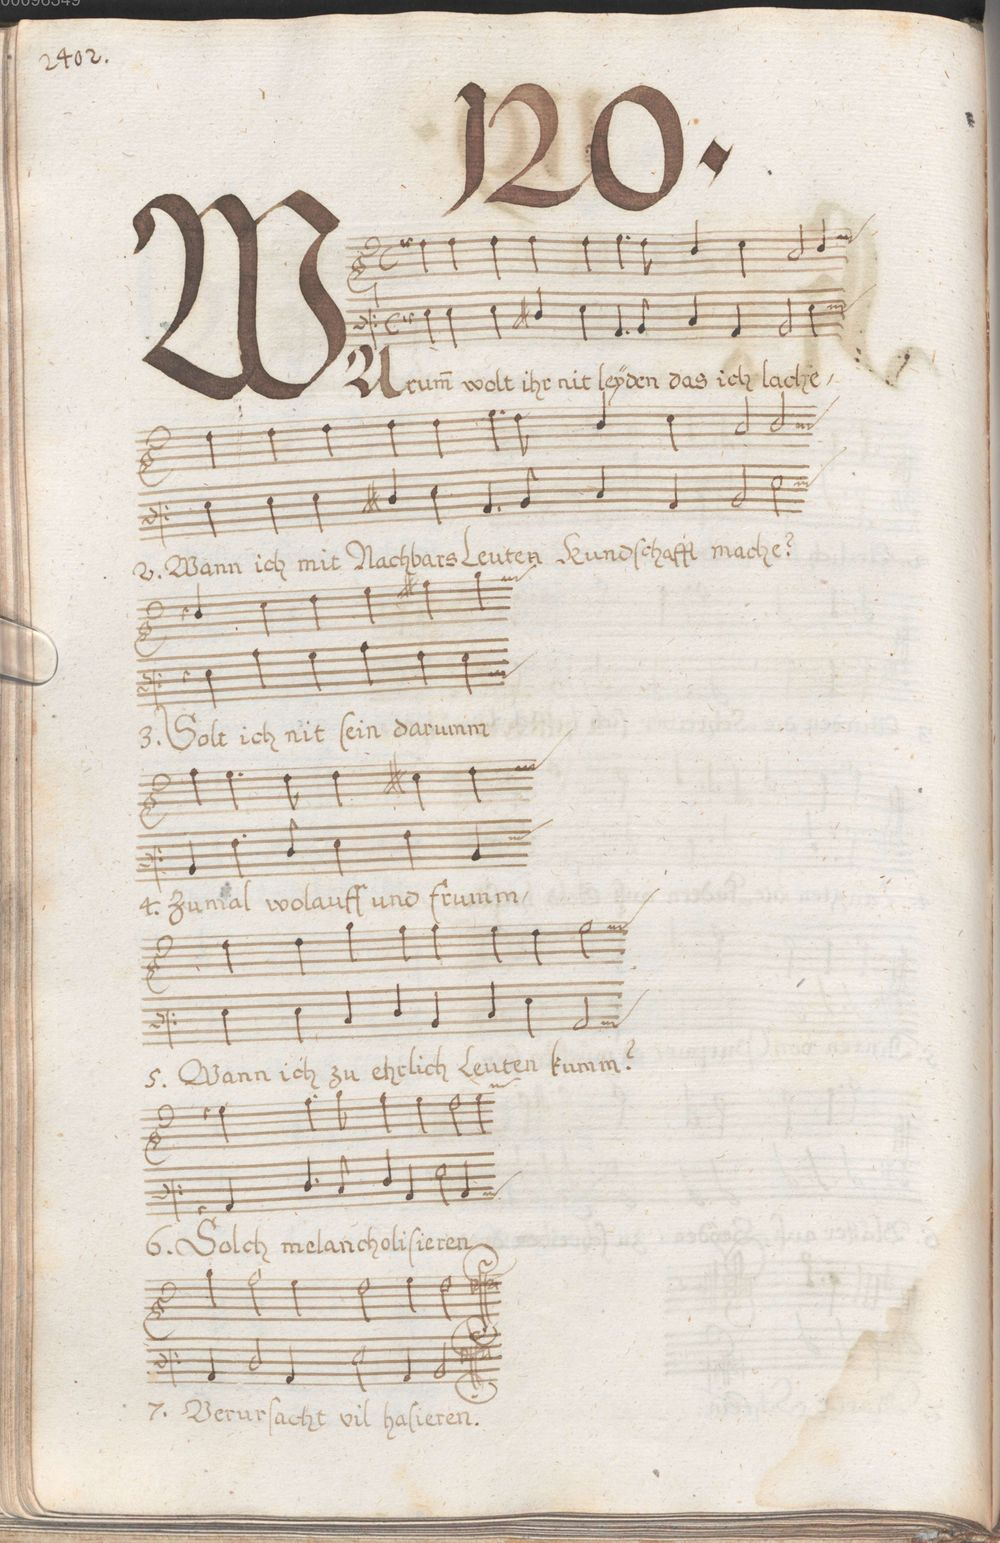 00096349
2402.
120.
WArum̃ wolt ihr nit leÿden das ich lache,
2. Wann ich mit Nachbars Leuten Kundschafft mache?
3. Solt ich nit sein darumm
4. Zumal wolauff und frumm
5. Wann ich zu ehrlich Leuten kumm?
6. Solch melancholisieren
7. Verursacht vil hasieren.